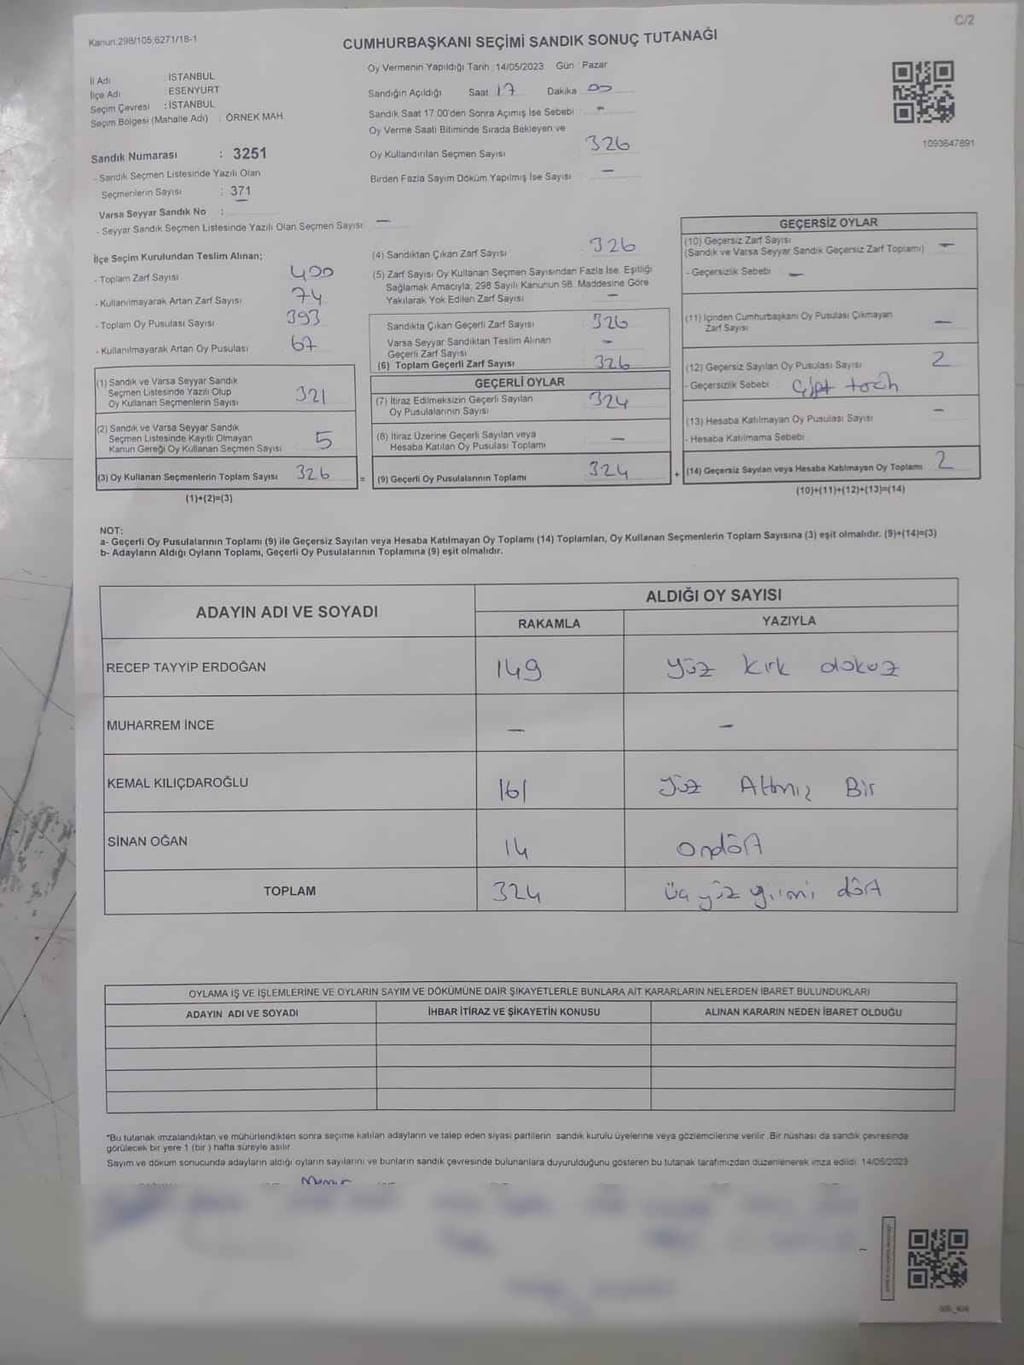 C/2
Kanun:298/105;6271/18-1
CUMHURBAŞKANI SEÇİMİ SANDIK SONUÇ TUTANAĞI
İl Adı : İSTANBUL
İlçe Adı : ESENYURT
Seçim Çevresi : İSTANBUL
Seçim Bölgesi (Mahalle Adı) : ÖRNEK MAH.
Sandık Numarası : 3251
- Sandık Seçmen Listesinde Yazılı Olan
Seçmenlerin Sayısı : 371
Varsa Seyyar Sandık No :
- Seyyar Sandık Seçmen Listesinde Yazılı Olan Seçmen Sayısı —
Oy Vermenin Yapıldığı Tarih :14/05/2023 Gün : Pazar
Sandığın Açıldığı Saat 17 Dakika 00
Sandık Saat 17:00'den Sonra Açılmış İse Sebebi —
Oy Verme Saati Bitiminde Sırada Bekleyen ve
Oy Kullandırılan Seçmen Sayısı 326
Birden Fazla Sayım Döküm Yapılmış İse Sayısı —
1093647891
İlçe Seçim Kurulundan Teslim Alınan;
- Toplam Zarf Sayısı 400
- Kullanılmayarak Artan Zarf Sayısı 74
- Toplam Oy Pusulası Sayısı 393
- Kullanılmayarak Artan Oy Pusulası 67
(1) Sandık ve Varsa Seyyar Sandık
Seçmen Listesinde Yazılı Olup
Oy Kullanan Seçmenlerin Sayısı 321
(2) Sandık ve Varsa Seyyar Sandık
Seçmen Listesinde Kayıtlı Olmayan
Kanun Gereği Oy Kullanan Seçmen Sayısı 5
(3) Oy Kullanan Seçmenlerin Toplam Sayısı 326
(1)+(2)=(3)
(4) Sandıktan Çıkan Zarf Sayısı 326
(5) Zarf Sayısı Oy Kullanan Seçmen Sayısından Fazla İse, Eşitliği
Sağlamak Amacıyla; 298 Sayılı Kanunun 98. Maddesine Göre
Yakılarak Yok Edilen Zarf Sayısı —
Sandıkta Çıkan Geçerli Zarf Sayısı 326
Varsa Seyyar Sandıktan Teslim Alınan
Geçerli Zarf Sayısı —
(6) Toplam Geçerli Zarf Sayısı 326
GEÇERLİ OYLAR
(7) İtiraz Edilmeksizin Geçerli Sayılan
Oy Pusulalarının Sayısı 324
(8) İtiraz Üzerine Geçerli Sayılan veya
Hesaba Katılan Oy Pusulası Toplamı —
= (9) Geçerli Oy Pusulalarının Toplamı 324
GEÇERSİZ OYLAR
(10) Geçersiz Zarf Sayısı
(Sandık ve Varsa Seyyar Sandık Geçersiz Zarf Toplamı) —
- Geçersizlik Sebebi —
(11) İçinden Cumhurbaşkanı Oy Pusulası Çıkmayan
Zarf Sayısı —
(12) Geçersiz Sayılan Oy Pusulası Sayısı 2
- Geçersizlik Sebebi
(13) Hesaba Katılmayan Oy Pusulası Sayısı —
- Hesaba Katılmama Sebebi
+ (14) Geçersiz Sayılan veya Hesaba Katılmayan Oy Toplamı 2
(10)+(11)+(12)+(13)=(14)
NOT:
a- Geçerli Oy Pusulalarının Toplamı (9) ile Geçersiz Sayılan veya Hesaba Katılmayan Oy Toplamı (14) Toplamları, Oy Kullanan Seçmenlerin Toplam Sayısına (3) eşit olmalıdır. (9)+(14)=(3)
b- Adayların Aldığı Oyların Toplamı, Geçerli Oy Pusulalarının Toplamına (9) eşit olmalıdır.
ADAYIN ADI VE SOYADI
ALDIĞI OY SAYISI
RAKAMLA YAZIYLA
RECEP TAYYİP ERDOĞAN 149 yüz kırk dokuz
MUHARREM İNCE — —
KEMAL KILIÇDAROĞLU 161 Yüz Altmış Bir
SİNAN OĞAN 14 ondört
TOPLAM 324 üç yüz yirmi dört
OYLAMA İŞ VE İŞLEMLERİNE VE OYLARIN SAYIM VE DÖKÜMÜNE DAİR ŞİKAYETLERLE BUNLARA AİT KARARLARIN NELERDEN İBARET BULUNDUKLARI
ADAYIN ADI VE SOYADI İHBAR İTİRAZ VE ŞİKAYETİN KONUSU ALINAN KARARIN NEDEN İBARET OLDUĞU
*Bu tutanak imzalandıktan ve mühürlendikten sonra seçime katılan adayların ve talep eden siyasi partilerin sandık kurulu üyelerine veya gözlemcilerine verilir. Bir nüshası da sandık çevresinde
görülecek bir yere 1 (bir) hafta süreyle asılır.
Sayım ve döküm sonucunda adayların aldığı oyların sayılarını ve bunların sandık çevresinde bulunanlara duyurulduğunu gösteren bu tutanak tarafımızdan düzenlenerek imza edildi. 14/05/2023